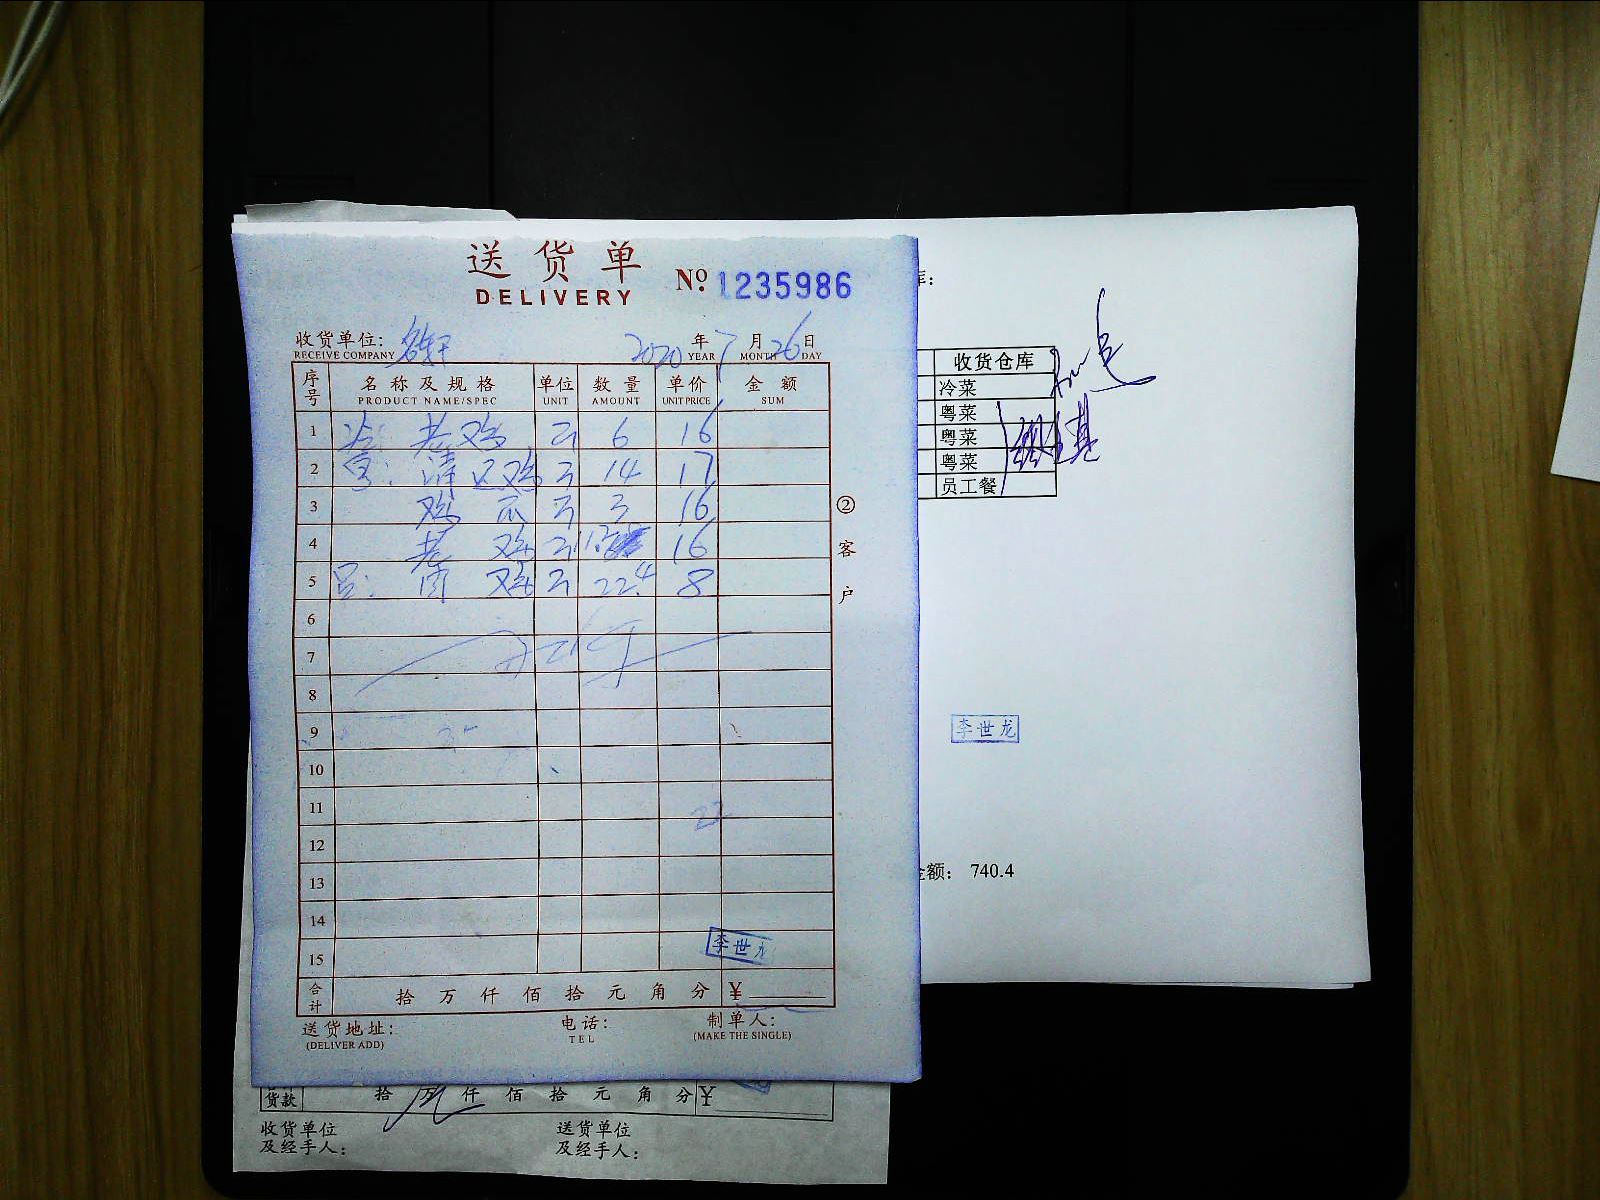 送货单
DELIVERY
№ 1235986
收货单位:
RECEIVE COMPANY
2020 年 7 月 26 日
YEAR MONTH DAY
序号 名称及规格 单位 数量 单价 金额
PRODUCT NAME/SPEC UNIT AMOUNT UNIT PRICE SUM
1 老鸡 6 16
2 清远鸡 14 17
3 鸡瓜 3 16
4 老鸡 16
5 肉鸡 22.4 8
6
7
8
9
10
11
12
13
14
15
李世龙
合计 拾万仟佰拾元角分 ¥
送货地址: 电话: 制单人:
(DELIVER ADD) TEL (MAKE THE SINGLE)
②客户
货款 拾万仟佰拾元角分 ¥
收货单位及经手人:
送货单位及经手人:
库:
收货仓库
冷菜
粤菜
粤菜
粤菜
员工餐
李世龙
金额: 740.4